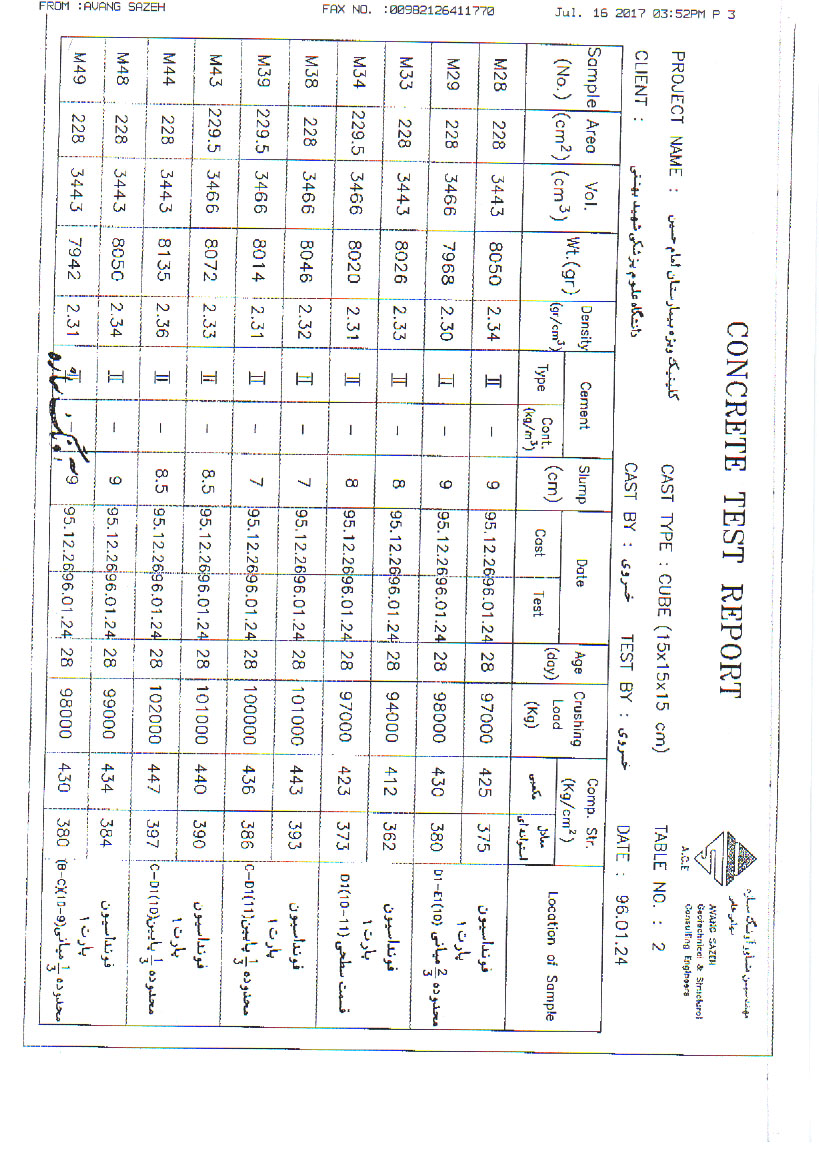 FROM :AVANG SAZEH FAX NO. :00982126411770 Jul. 16 2017 03:52PM P 3
CONCRETE TEST REPORT
مهندسین مشاور آونگ سازه
AVANG SAZEH
Geotechnical & Structural
Consulting Engineers
A.G.E
PROJECT NAME : کلینیک ویژه بیمارستان امام حسین CAST TYPE : CUBE (15x15x15 cm) TABLE NO. : 2
CLIENT : دانشگاه علوم پزشکی شهید بهشتی CAST BY : خسروی TEST BY : خسروی DATE : 96.01.24
Sample (No.) Area (cm2) Vol. (cm3) Wt.(gr) Density (gr/cm3) Cement Type Cont. (kg/m3) Slump (cm) Date Cast Test Age (day) Crushing Load (Kg) Comp. Str. (Kg/cm2) مکعبی معادل استوانه ای Location of Sample
M28 228 3443 8050 2.34 II - 9 95.12.26 96.01.24 28 97000 425 375 فونداسیون
پارت ۱
M29 228 3466 7968 2.30 II - 9 95.12.26 96.01.24 28 98000 430 380 محدوده 2/3 میانی D1-E1(10)
M33 228 3443 8026 2.33 II - 8 95.12.26 96.01.24 28 94000 412 362 فونداسیون
پارت ۱
M34 229.5 3466 8020 2.31 II - 8 95.12.26 96.01.24 28 97000 423 373 قسمت سطحی D1(10-11)
M38 228 3466 8046 2.32 II - 7 95.12.26 96.01.24 28 101000 443 393 فونداسیون
پارت ۱
M39 229.5 3466 8014 2.31 II - 7 95.12.26 96.01.24 28 100000 436 386 محدوده 1/3 پایین C-D1(11)
M43 229.5 3466 8072 2.33 II - 8.5 95.12.26 96.01.24 28 101000 440 390 فونداسیون
پارت ۱
M44 228 3443 8135 2.36 II - 8.5 95.12.26 96.01.24 28 102000 447 397 محدوده 1/3 پایین C-D1(10)
M48 228 3443 8050 2.34 II - 9 95.12.26 96.01.24 28 99000 434 384 فونداسیون
پارت ۱
M49 228 3443 7942 2.31 II - 9 95.12.26 96.01.24 28 98000 430 380 محدوده 1/3 میانی (B-C)(10-9)